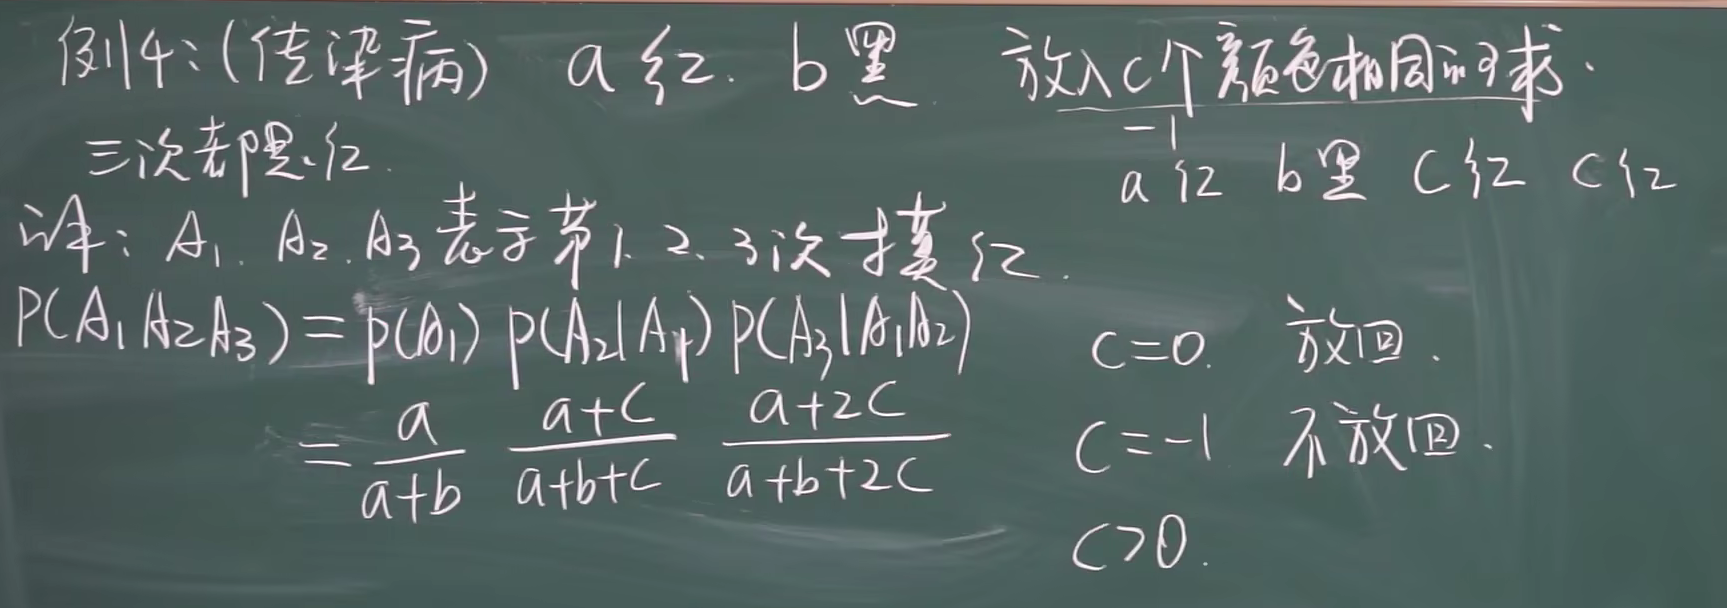 例4:(传染病) a红. b黑. 放入C个颜色相同的球.
三次都是红.
-1
a红 b黑 C红 C红
解: A₁. A₂. A₃表示第1. 2. 3次摸红.
P(A₁A₂A₃)=P(A₁) P(A₂|A₁) P(A₃|A₁A₂)
= a/(a+b) (a+C)/(a+b+C) (a+2C)/(a+b+2C)
C=0. 放回.
C=-1 不放回.
C>0.